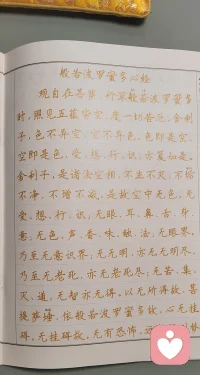 般若波罗蜜多心经
观自在菩萨，行深般若波罗蜜多
时，照见五蕴皆空，度一切苦厄，舍利
子，色不异空，空不异色，色即是空，
空即是色，受、想、行、识，亦复如是。
舍利子，是诸法空相，不生不灭，不垢
不净，不增不减，是故空中无色，无
受、想、行、识，无眼、耳、鼻、舌、身、
意，无色、声、香、味、触、法，无眼界，
乃至无意识界，无无明，亦无无明尽，
乃至无老死，亦无老死尽；无苦、集、
灭、道，无智亦无得。以无所得故，菩
提萨埵，依般若波罗蜜多故，心无挂
碍，无挂碍故，无有恐怖，远